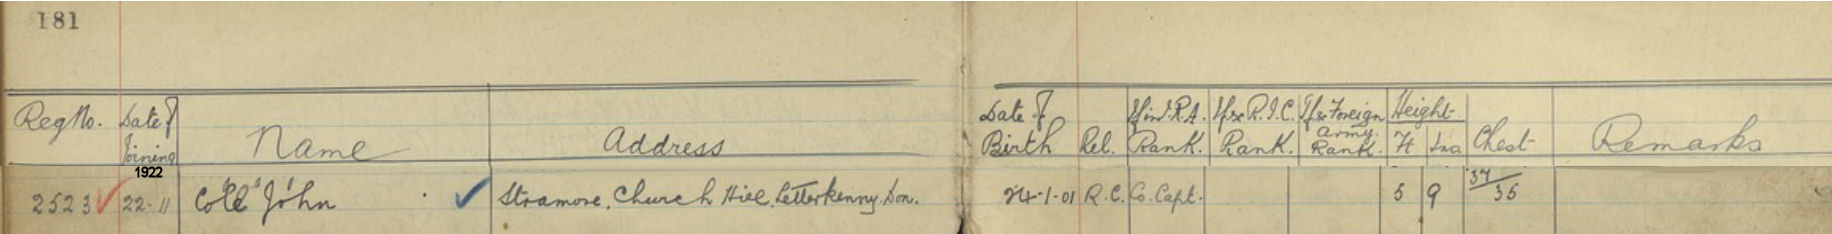 181
Reg No. Date of Joining Name Address Date of Birth Rel. If in I.R.A. Rank. If ex R.I.C. Rank. If ex Foreign Army. Rank. Height Ft Ins Chest Remarks
1922
2523 22-11 Cole John Stramore, Church Hill, Letterkenny. Don. 24-1-01 R.C. Co. Capt. 5 9 37/35